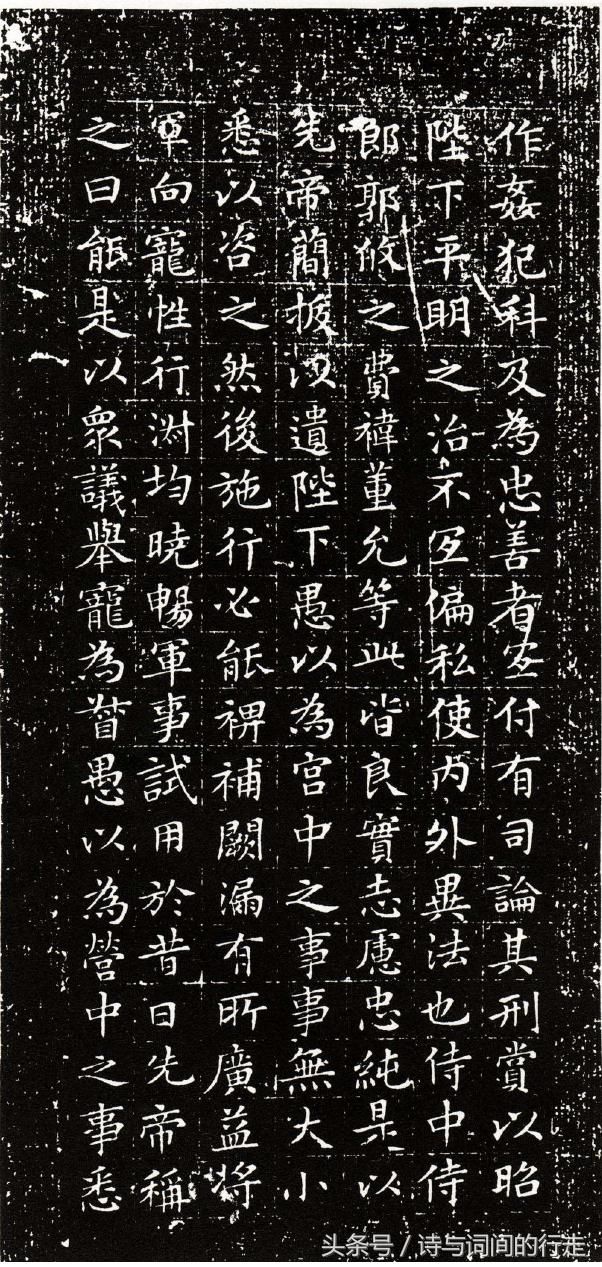 作姦犯科及為忠善者宜付有司論其刑賞以昭
陛下平明之治不宜偏私使内外異法也侍中侍
郎郭攸之費禕董允等此皆良實志慮忠純是以
先帝簡拔以遺陛下愚以為宮中之事事無大小
悉以咨之然後施行必能裨補闕漏有所廣益將
軍向寵性行淑均曉暢軍事試用於昔日先帝稱
之曰能是以衆議舉寵為督愚以為營中之事悉
头条号 / 诗与词间的行走